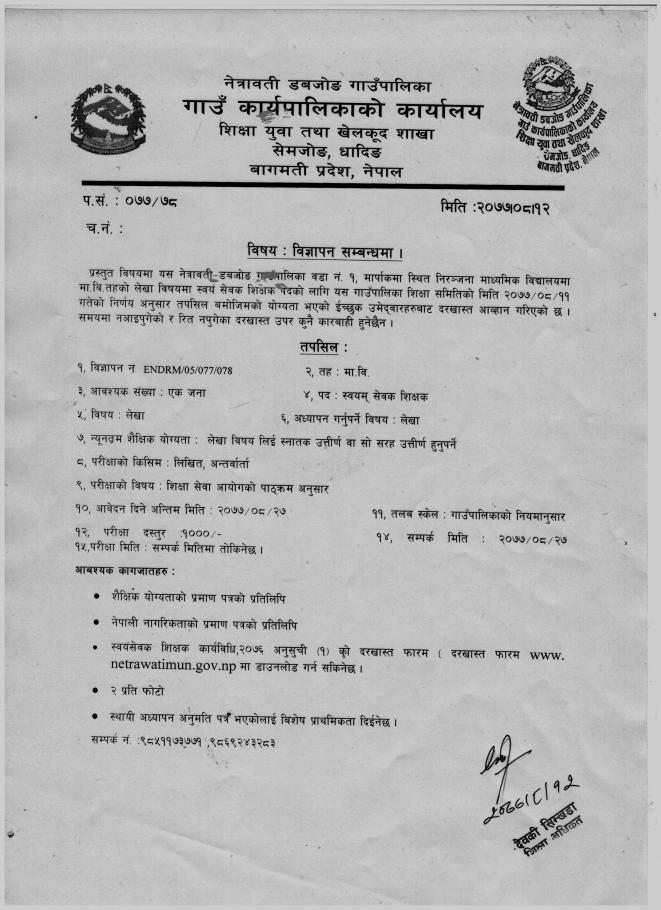 नेत्रावती डबजोङ गाउँपालिका
गाउँ कार्यपालिकाको कार्यालय
शिक्षा युवा तथा खेलकूद शाखा
सेमजोङ, धादिङ
बागमती प्रदेश, नेपाल
नेत्रावती डबजोङ गाउँपालिका
गाउँ कार्यपालिकाको कार्यालय
शिक्षा युवा तथा खेलकूद शाखा
सेमजोङ, धादिङ
बागमती प्रदेश, नेपाल
प.सं. : ०७७/७८
मिति :२०७७।०८।१२
च.नं. :
विषय : विज्ञापन सम्बन्धमा ।
प्रस्तुत विषयमा यस नेत्रावती-डबजोङ गाउँपालिका वडा नं. १, मार्पाकमा स्थित निरञ्जना माध्यमिक विद्यालयमा
मा.वि.तहको लेखा विषयमा स्वयं सेवक शिक्षक पदको लागि यस गाउँपालिका शिक्षा समितिको मिति २०७७/०८/११
गतेको निर्णय अनुसार तपसिल बमोजिमको योग्यता भएको ईच्छुक उमेद्वारहरुबाट दरखास्त आव्हान गरिएको छ ।
समयमा नआइपुगेको र रित नपुगेका दरखास्त उपर कुनै कारबाही हुनेछैन ।
तपसिल :
१, विज्ञापन न ENDRM/05/077/078
२, तह : मा.वि.
३, आवश्यक संख्या : एक जना
४, पद : स्वयम् सेवक शिक्षक
५, विषय : लेखा
६, अध्यापन गर्नुपर्ने विषय : लेखा
७, न्यूनतम शैक्षिक योग्यता : लेखा विषय लिई स्नातक उत्तीर्ण वा सो सरह उत्तीर्ण हुनुपर्ने
८, परीक्षाको किसिम : लिखित, अन्तर्वार्ता
९, परीक्षाको विषय : शिक्षा सेवा आयोगको पाठ्क्रम अनुसार
१०, आवेदन दिने अन्तिम मिति : २०७७/०८/२७
११, तलब स्केल : गाउँपालिकाको नियमानुसार
१२, परीक्षा दस्तुर :१०००/-
१४, सम्पर्क मिति : २०७७/०८/२७
१५,परीक्षा मिति : सम्पर्क मितिमा तोकिनेछ ।
आबश्यक कागजातहरु :
• शैक्षिक योग्यताको प्रमाण पत्रको प्रतिलिपि
• नेपाली नागरिकताको प्रमाण पत्रको प्रतिलिपि
• स्वयंसेवक शिक्षक कार्यविधि,२०७६ अनुसुची (१) को दरखास्त फारम ( दरखास्त फारम www.
netrawatimun.gov.np मा डाउनलोड गर्न सकिनेछ ।
• २ प्रति फोटो
• स्थायी अध्यापन अनुमति पत्र भएकोलाई बिशेष प्राथमिकता दिईनेछ ।
सम्पर्क नं. :९८५११७३७७१ ,९८६९२४३२८३
२०७७।८।१२
देवकी सिम्खडा
शिक्षा अधिकृत